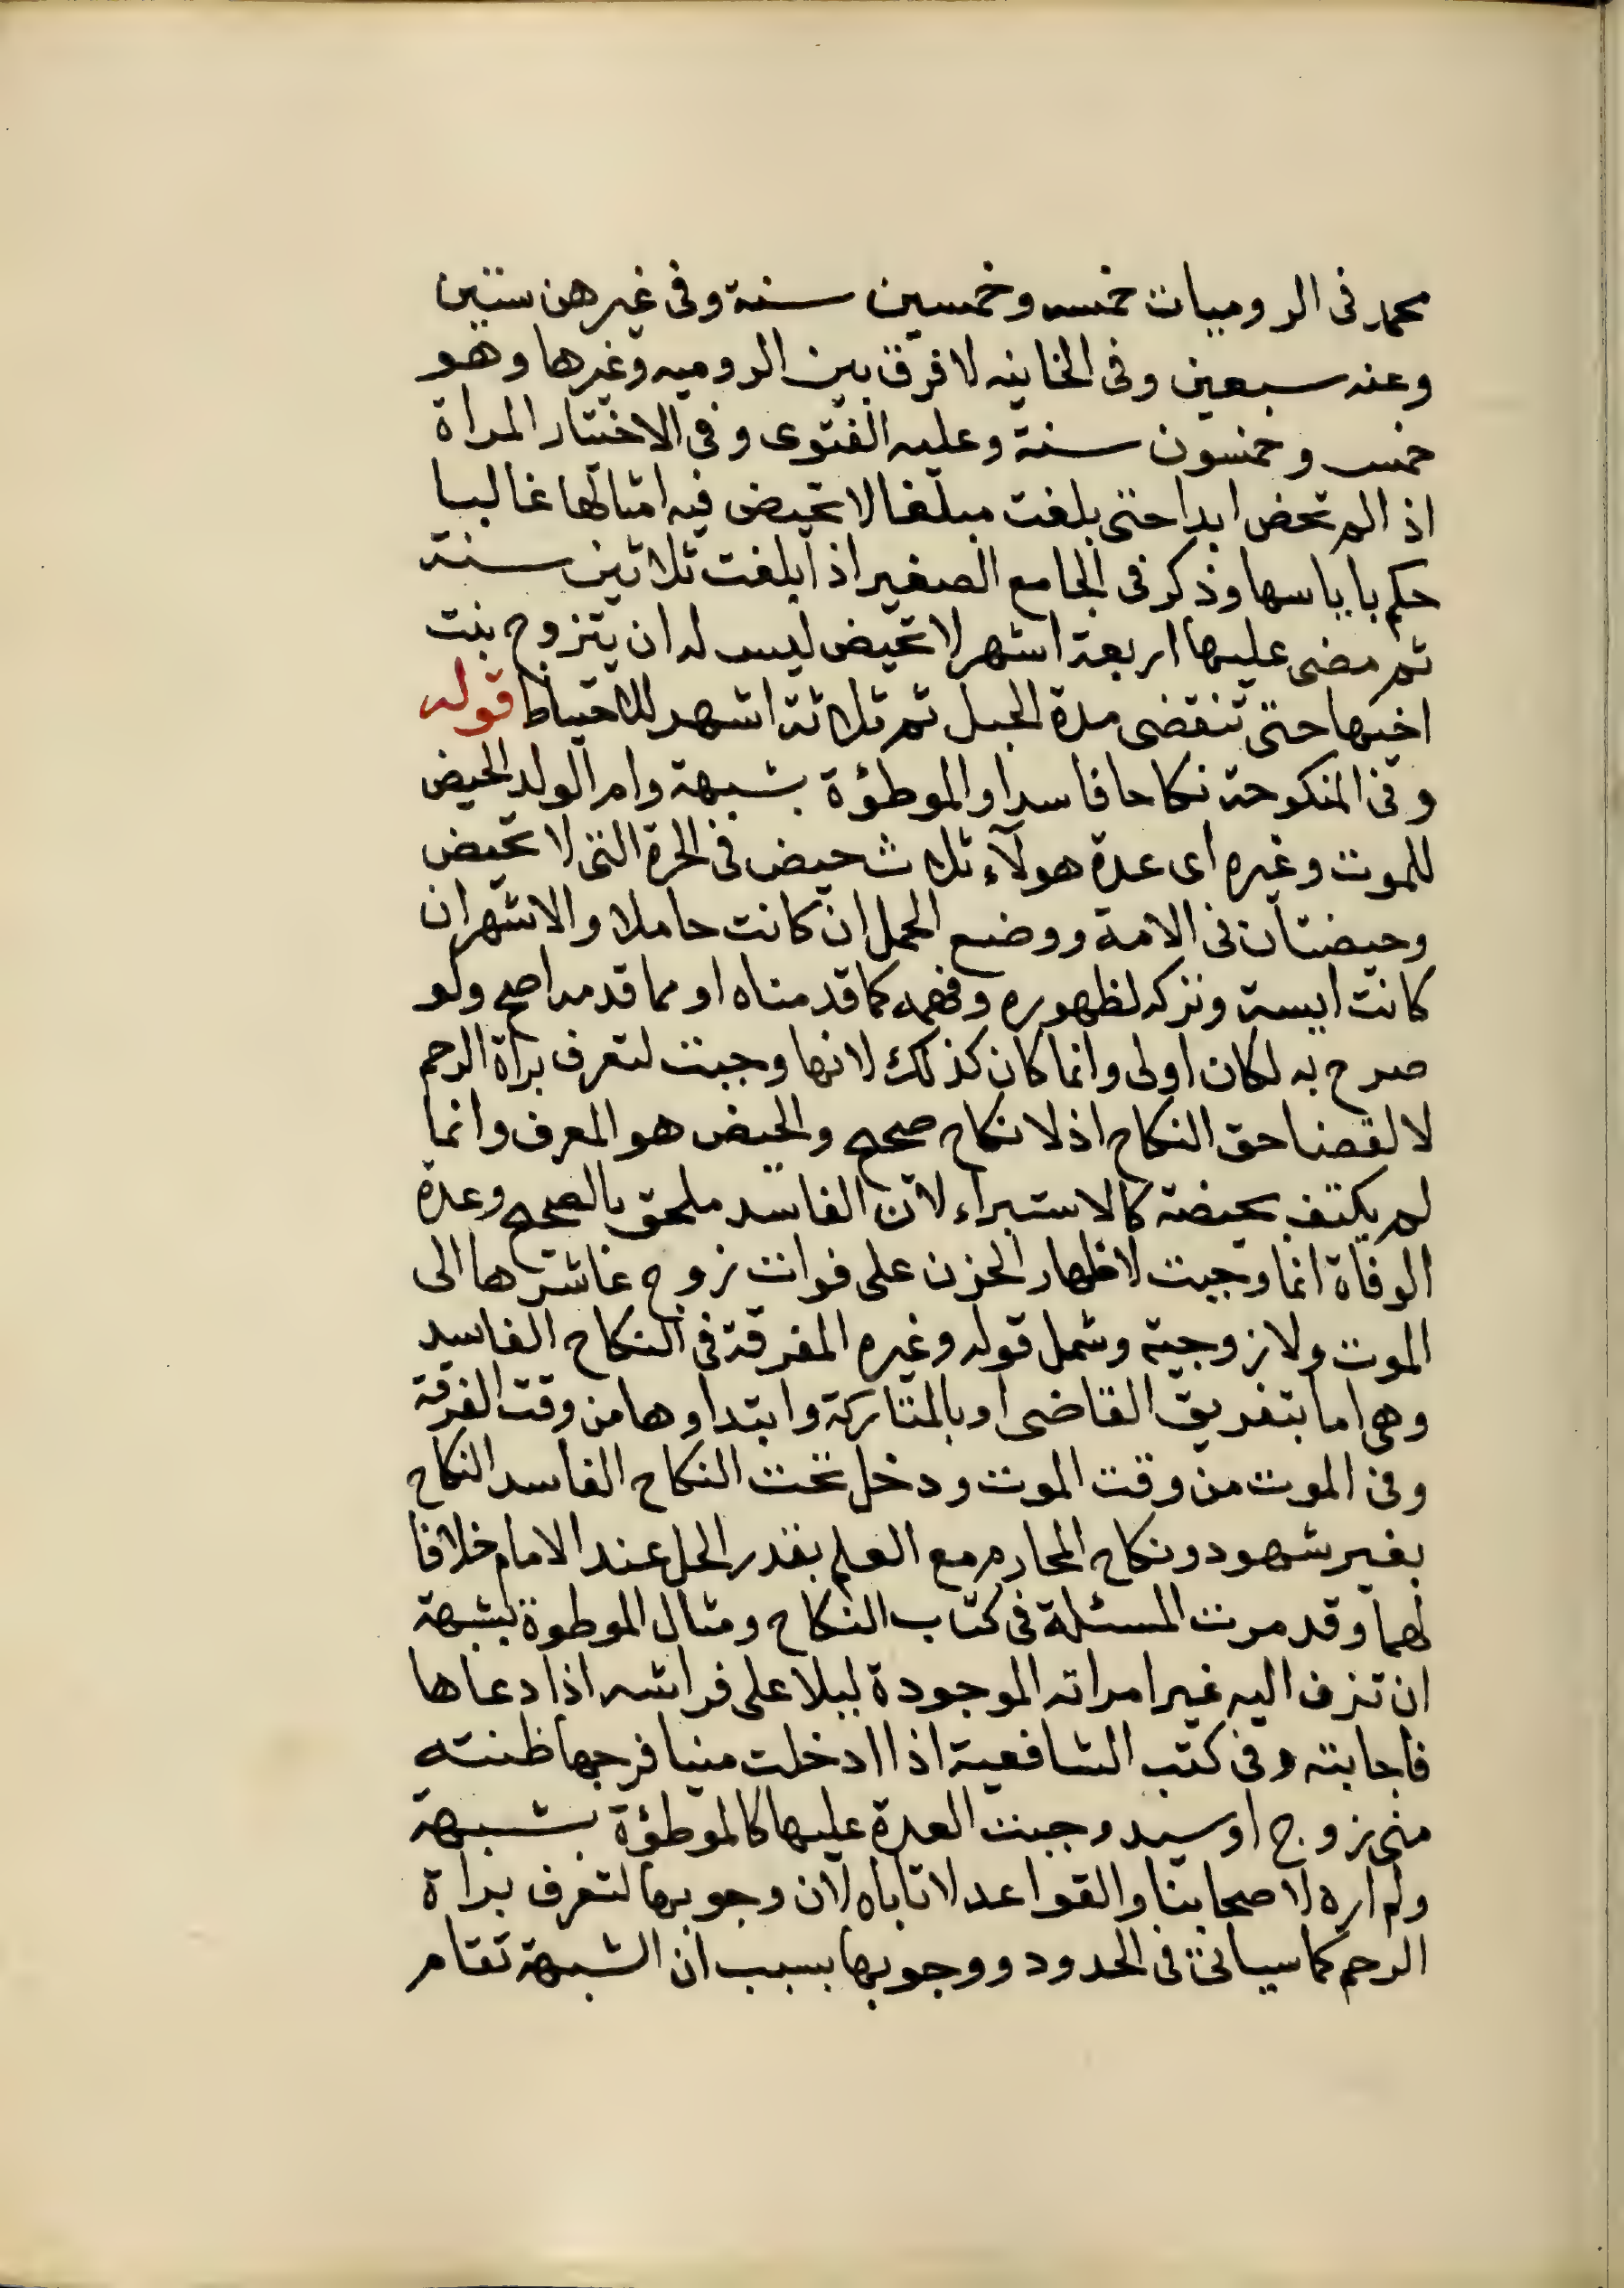 محمد فى الروميات خمسه وخمسين سنة وفى غيرهن ستين
وعنه سبعين وفى الخانيه لا فرق بين الروميه وغيرها وهو
خمس وخمسون سنة وعليه الفتوى وفى الاختيار المراة
اذ الم تحض ابدا حتى بلغت مبلغا لا تحيض فيه امثالها غالبا
حكم باياسها وذكر فى الجامع الصغير اذا بلغت ثلاثين سنة
ثم مضى عليها اربعة اشهر لا تحيض ليس له ان يتزوج بنت
اخيها حتى تنقضى مدة الحبل ثم ثلاثة اشهر للاحتياط قوله
وفى المنكوحة نكاحا فاسدا والموطؤة بشبهة وام الولد الحيض
للموت وغيره اى عدة هولآء ثلاث حيض فى الحرة التى لا تحيض
وحيضتان فى الامة ووضع الحمل ان كانت حاملا والاشهر ان
كانت ايسة وتركه لظهوره وفهمه كما قدمناه او مما قدمه اصح ولو
صرح به لكان اولى وانما كان كذلك لانها وجبت لتعرف براة الرحم
لا لقضا حق النكاح اذ لا نكاح صحيح والحيض هو المعرف وانما
لم يكتف بحيضة كالاستبراء لان الفاسد ملحق بالصحيح وعدة
الوفاة انما وجبت لاظهار الحزن على فوات زوج عاشرها الى
الموت ولا زوجية وشمل قوله وغيره المفرقة فى النكاح الفاسد
وهى اما بتفريق القاضى او بالمتاركة وابتداوها من وقت الفرقة
وفى الموت من وقت الموت ودخل تحت النكاح الفاسد النكاح
بغير شهود ونكاح المحارم مع العلم بعدم الحل عند الامام خلافا
لهما وقد مرت المسئلة فى كتاب النكاح ومثال الموطوة بشبهة
ان تزف اليه غير امراته الموجودة ليلا على فراشه اذا دعاها
فاجابته وفى كتب الشافعية اذا ادخلت منيا فرجها ظنته
منى زوج او سيد وجبت العدة عليها كالموطؤة بشبهة
ولم اره لاصحابنا والقواعد لا تاباه لان وجوبها لتعرف براة
الرحم كما سياتى فى الحدود ووجوبها بسبب ان الشبهة تقام